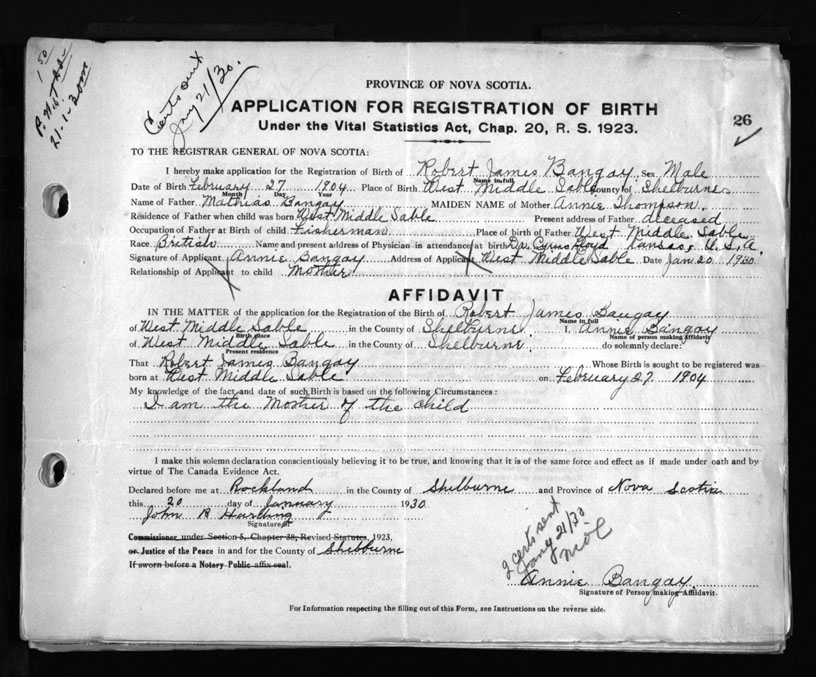 1 50
21-1-30
Certs sent
Jany 21/30.
PROVINCE OF NOVA SCOTIA.
APPLICATION FOR REGISTRATION OF BIRTH
26
Under the Vital Statistics Act, Chap. 20, R. S. 1923.
TO THE REGISTRAR GENERAL OF NOVA SCOTIA:
I hereby make application for the Registration of Birth of Robert James Bangay. Sex Male
Name in full
Date of Birth February 27 1904 Place of Birth West Middle Sable County of Shelburne
Month Day Year
Name of Father Mathias Bangay MAIDEN NAME of Mother Annie Thompson.
Residence of Father when child was born West Middle Sable Present address of Father deceased
Occupation of Father at Birth of child Fisherman Place of birth of Father West Middle Sable
Race British Name and present address of Physician in attendance at birth Dr. Cyrus Lloyd Kansas, U.S.A.
Signature of Applicant Annie Bangay Address of Applicant West Middle Sable Date Jan 20 1930
Relationship of Applicant to child Mother
AFFIDAVIT
IN THE MATTER of the application for the Registration of the Birth of Robert James Bangay
Name in full
of West Middle Sable in the County of Shelburne. I, Annie Bangay
Birth place Name of person making affidavit
of West Middle Sable in the County of Shelburne. do solemnly declare:
Present residence
That Robert James Bangay Whose Birth is sought to be registered was
born at West Middle Sable on February 27 1904
My knowledge of the fact and date of such Birth is based on the following Circumstances:
I am the Mother of the child
I make this solemn declaration conscientiously believing it to be true, and knowing that it is of the same force and effect as if made under oath and by
virtue of The Canada Evidence Act.
Declared before me at Rockland in the County of Shelburne and Province of Nova Scotia
this 20 day of January 1930
John R Harding
Signature of
Commissioner under Section 5, Chapter 38, Revised Statutes, 1923,
or Justice of the Peace in and for the County of Shelburne
If sworn before a Notary Public affix seal.
2 certs sent
Jany 21/30
Annie Bangay.
Signature of Person making Affidavit.
For Information respecting the filling out of this Form, see Instructions on the reverse side.